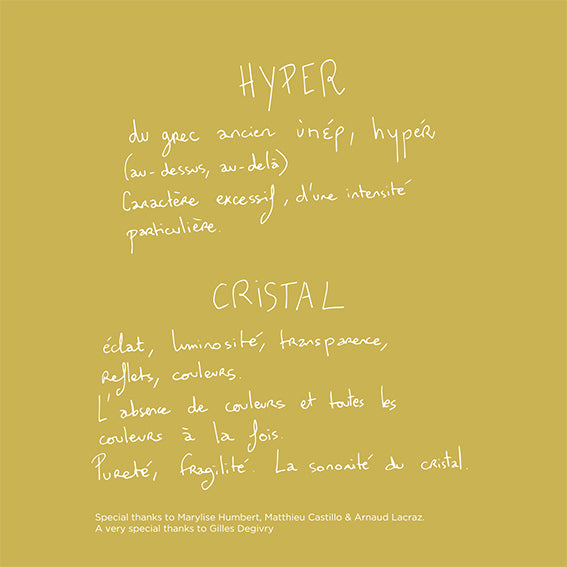 HYPER
du grec ancien ὑπép, hypér
(au-dessus, au-delà)
Caractère excessif, d'une intensité
particulière.
CRISTAL
éclat, luminosité, transparence,
reflets, couleurs.
L'absence de couleurs et toutes les
couleurs à la fois.
Pureté, fragilité. La sonorité du cristal.
Special thanks to Marylise Humbert, Matthieu Castillo & Arnaud Lacraz.
A very special thanks to Gilles Degivry